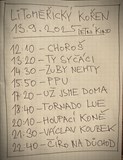 LITOMĚŘICKÝ KOŘEN
13.9.2025
LETNÍ KINO
12:10 - CHOROŠ
13:20 - TY SYČÁCI
14:30 - ŽUBY NEHTY
15:50 - PPU
17:20 - UŽ JSME DOMA
18:40 - TORNADO LUE
20:10 - HOUPACÍ KONĚ
21:30 - VÁCLAV KOUBEK
22:40 - ČÍRO NA DŮCHOD